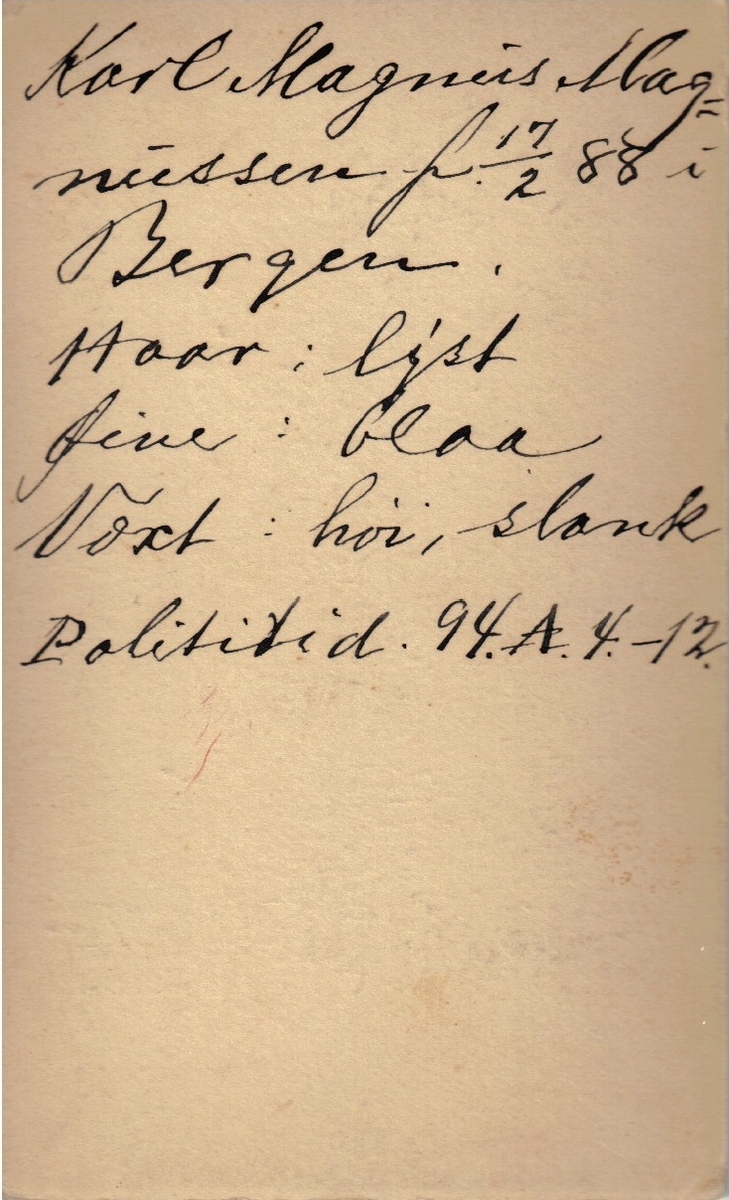 Karl Magnus Mag=
nussen f. 17/2 88 i
Bergen.
Haar : lyst
Øine : blaa
Vext : høi, slank
Polititid. 94. A. 4. - 12.